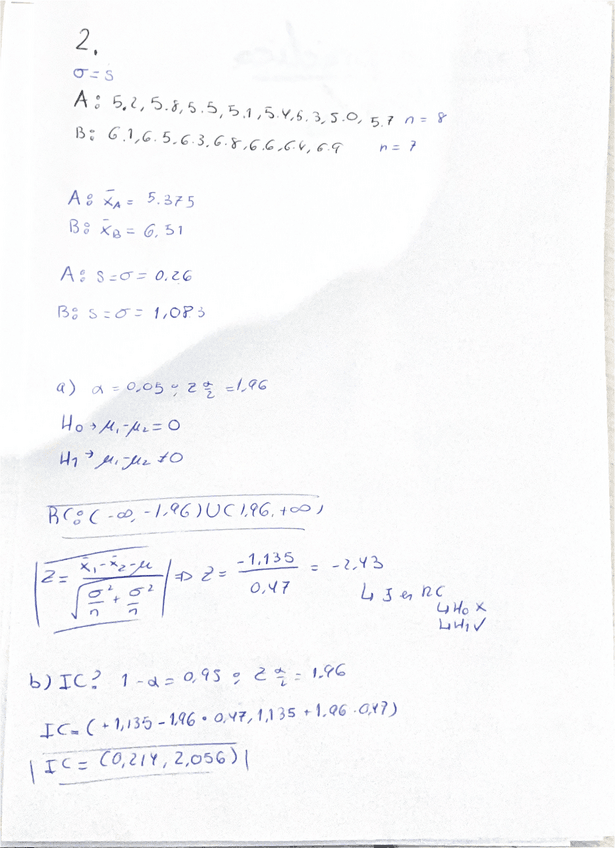 2.
σ = s
A: 5.2, 5.8, 5.5, 5.1, 5.4, 5.3, 5.0, 5.7 n = 8
B: 6.1, 6.5, 6.3, 6.8, 6.6, 6.4, 6.9 n = 7
A: x̄_A = 5.375
B: x̄_B = 6,51
A: s = σ = 0.26
B: s = σ = 1,083
a) α = 0,05 ; z α/2 = 1,96
H0 → μ1-μ2 = 0
H1 → μ1-μ2 ≠ 0
RC: (-∞, -1.96) U (1.96, +∞)
|Z = (x̄1 - x̄2 - μ) / √(σ²/n + σ²/n)| ⇒ Z = -1,135 / 0,47 = -2,43
↳ З en RC
↳ H0 ×
↳ H1 ✓
b) IC? 1-α = 0,95 ; z α/2 = 1.96
IC = (+1,135 - 1.96 · 0,47, 1,135 + 1.96 · 0,47)
| IC = (0,214, 2,056) |